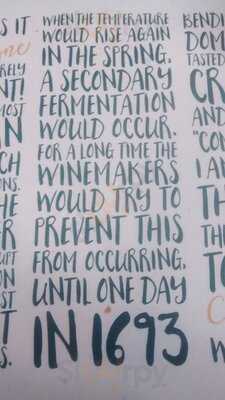 S IT
RELY
NT!
MOST
N
CH
ONS.
HE
R
UPT
ON
ST
T
S.
WHEN THE TEMPERATURE
WOULD RISE AGAIN
IN THE SPRING,
A SECONDARY
FERMENTATION
WOULD OCCUR.
FOR A LONG TIME THE
WINEMAKERS
WOULD TRY TO
PREVENT THIS
FROM OCCURRING,
UNTIL ONE DAY
IN 1693
BENDI
DOM
TASTED
CR
AND
"CO
I AM
TH
THE
TO